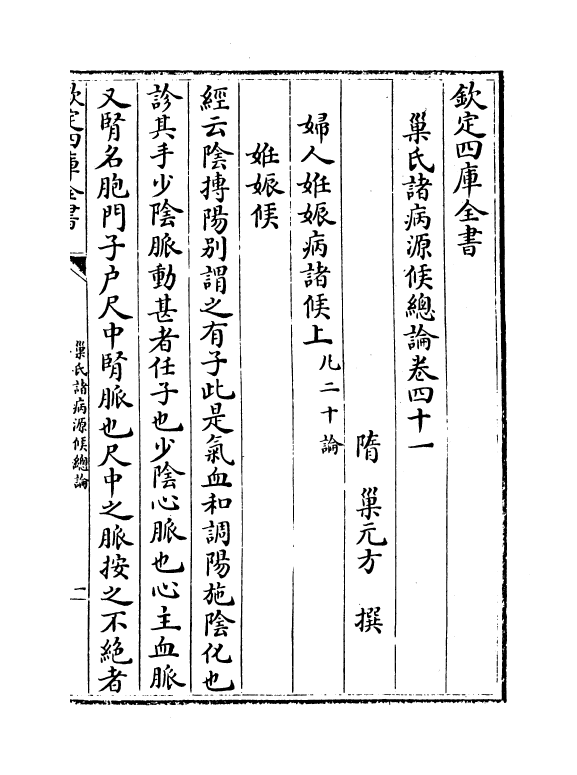 欽定四庫全書
巢氏諸病源候總論卷四十一
隋 巢元方 撰
婦人妊娠病諸候上 凡二十論
妊娠候
經云陰搏陽別謂之有子此是氣血和調陽施陰化也
診其手少陰脈動甚者任子也少陰心脈也心主血脈
又腎名胞門子户尺中腎脈也尺中之脈按之不絶者
欽定四庫全書
巢氏諸病源候總論